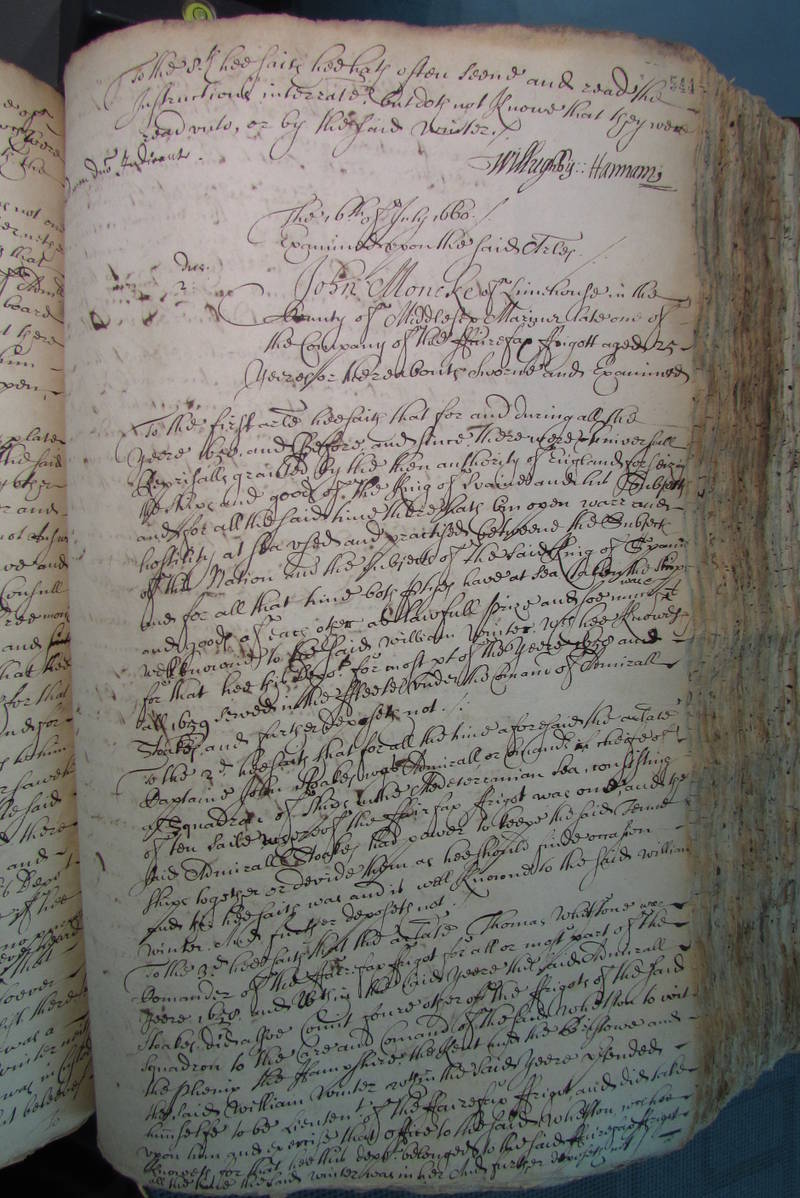 To the 8th hee saith hee hath often seene and read the
Instructions interrate but doth not knowe that they were
read unto, or by the said Winter./
Willughby: Hannam
544
The 16th of July 1660./
Examined upon the said Arles./
Dus.
2.
John Moncke of Limehouse in the
County of Middlesex Mariner late one of
the Company of the ffairefax ffrigott aged 25
Yeeres or thereabouts Sworne and Examined
To the first arle hee saith that for and during all the
yeere 1658, and before, and since there were universall
Reprisalls granted by the then authority of England for seizing
the ships and goods of the King of Spaine and his Subjects
and for all the said time there hath bin open warr and
hostility at sea used and practised betweene the Subjects
of this Nation and the Subjects of the said King of Spaine
and for all that time both parties have at Sea taken the ships
and goods of each other as lawfull prize and soe much was
well knowne to the said William Winter which hee knoweth
for that hee this depot for most pt of the yeere 1658 and
all 1659 served in the ffleete under the Comand of Admirall
Stoakes, and further deposeth not./
To the 2d. hee saith that for all the time aforesaid the arlate
Captaine John Stoakes was Admirall or Comander in cheife of
a Squadron of Ships in the Mediterranian Sea, consisting
of ten saile whereof the ffairfax ffrigot was one, and the
said Admirall Stoakes had power to keepe the said Tenne
Ships together or devide them as hee should finde occasion
and soe hee saith was and is well knowne to the said William
Winter. And further deposeth not./
To the 3d hee saith that the arlate Thomas Whetstone was
Comander of the ffairefax ffrigot for all or most part of the
yeere 1659, and within the said yeere the said Admirall
Stoakes did alsoe Comit foure other of the ffrigots of the said
Squadron to the Care and Comand of the said Whetston to wit
the Phenix the Hampshire the Kent and the Bristowe and
the said William Winter within the said yeere pretended
himselfe to be Lieutent of the ffairefax ffrigot, and did take
upon him and exercise that office to the said Whetston, wch hee
knoweth for that hee this depot belonged to the said ffairefax ffrigot
all the time the said Winter was in her And further deposeth not